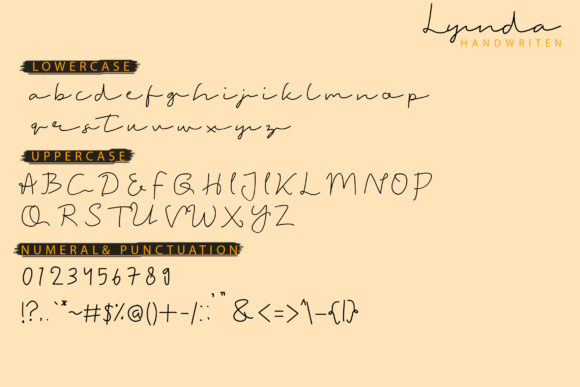 Lynda
HANDWRITEN
LOWERCASE
a b c d e f g h i j i k l m n o p
q r s T u v w x y z
UPPERCASE
A B C D E F G H I J I K L M N O P
Q R S T U V W X Y Z
NUMERAL& PUNCTUATION
0 1 2 3 4 5 6 7 8 9
!?,.`*~#$%@()+-/:;'"&<=>^\–{|}